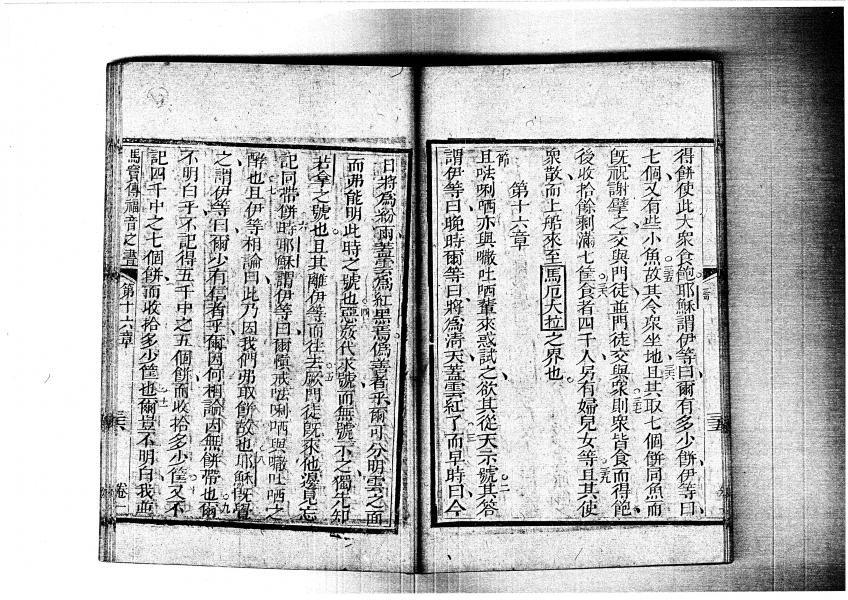 得餅使此大衆食飽耶穌謂伊等曰爾有多少餅伊等曰
七個又有些小魚故其令衆坐地且其取七個餅同魚而
旣祝謝擘之交與門徒並門徒交與衆則衆皆食而得飽
後收拾餘剩滿七筐食者四千人另有婦兒女等且其使
衆散而上船來至馬厄大拉之界也
第十六章
且㕸唎哂亦與𠽾吐哂輩來惑試之欲其從天示號其答
謂伊等曰晚時爾等曰將爲淸天蓋雲紅了而早時曰今
日將爲紛雨蓋雲爲紅黑焉僞善者乎爾可分明雲之面
而弗能明此時之號也惡姦代求號而無號示之獨先知
若拿之號也且其離伊等而往去厥門徒旣來他邊見忘
記同帶餅時耶穌謂伊等曰爾愼戒㕸唎哂與𠽾吐哂之
酵也且伊等相論曰此乃因我們弗取餅故也耶穌旣覺
之謂伊等曰爾少有信者乎爾因何相論因無餅帶也爾
不明白乎不記得五千中之五個餅而收拾多少筐又不
記四千中之七個餅而收拾多少筐也爾豈不明白我
馬寶傳福音之書
第十六章
卷一